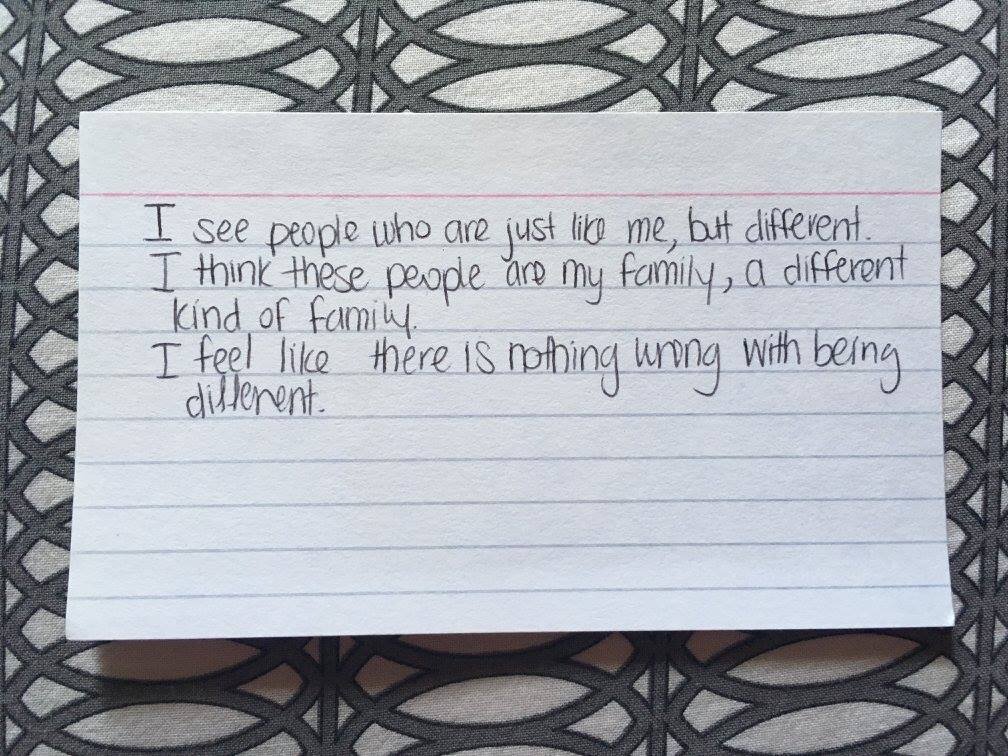 I see people who are just like me, but different.
I think these people are my family, a different
kind of family.
I feel like there is nothing wrong with being
different.